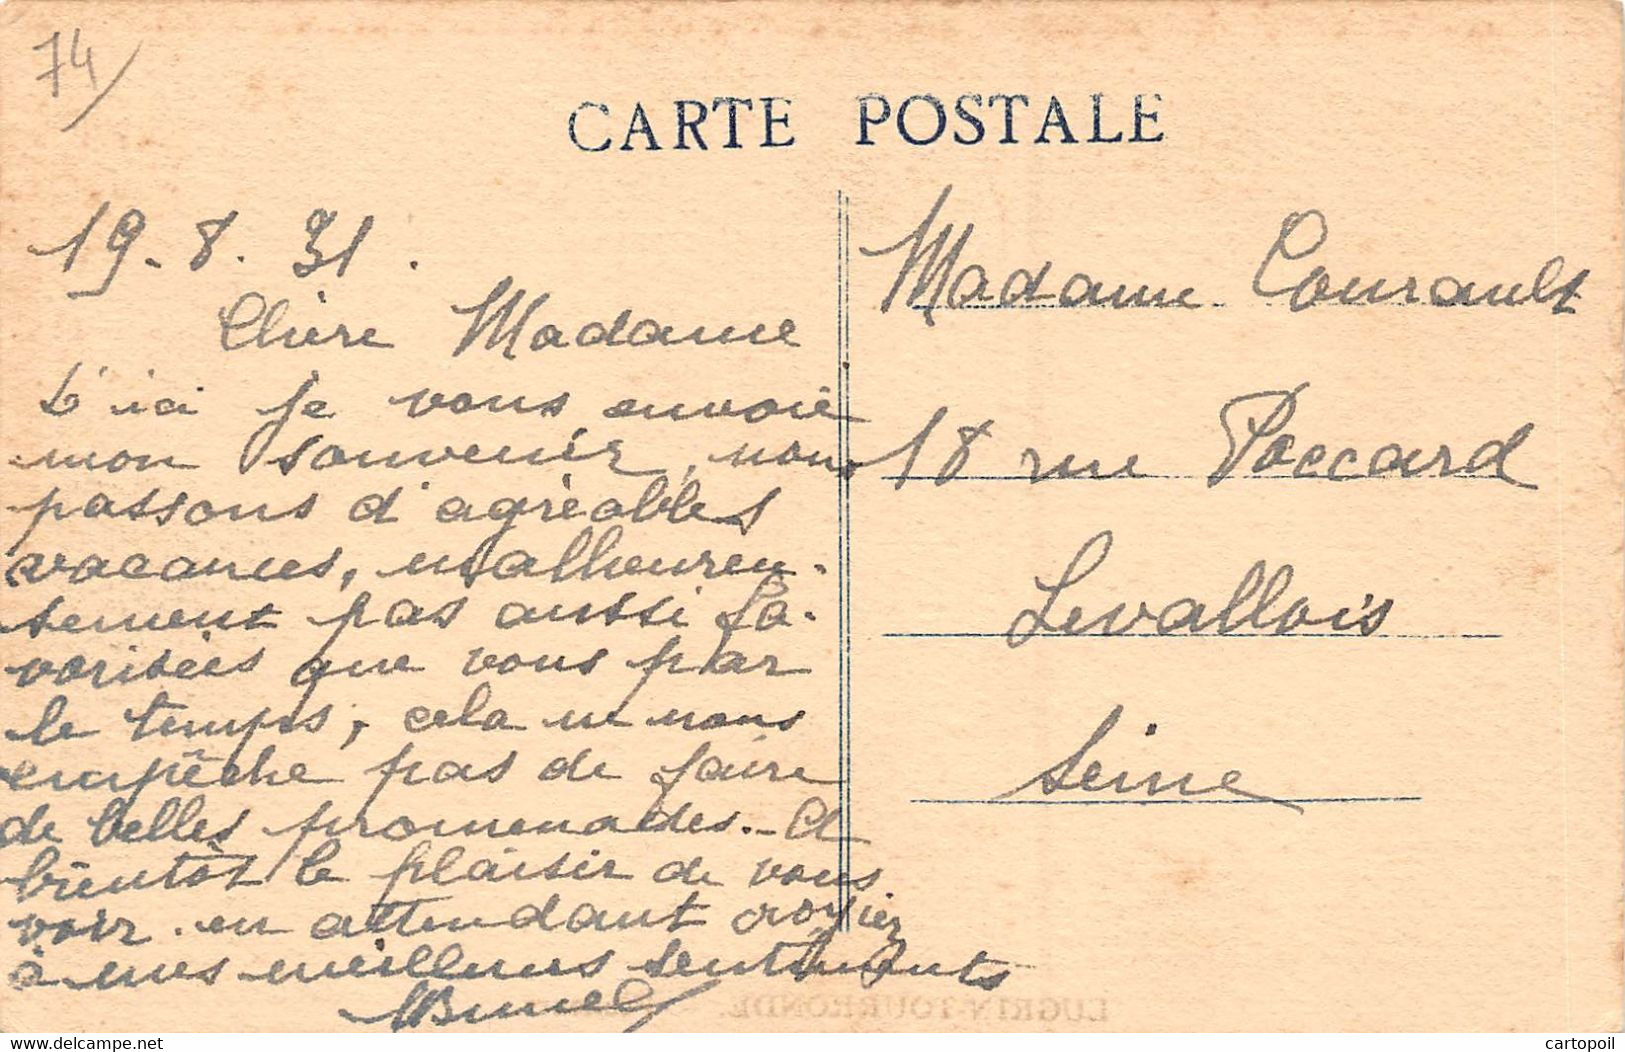 74
CARTE POSTALE
19-8.31.
Chère Madame
D'ici je vous envoie
mon souvenir, nous
passons d'agréables
vacances, malheureu-
sement pas aussi fa-
vorisées que vous par
le temps, cela ne nous
empêche pas de faire
de belles promenades.- A
bientôt le plaisir de vous
voir. en attendant croyiez
à mes meilleurs sentiments
Madame Courault
18 rue Poccard
Levallois
Seine
LUGRIN-TOURRONDE.
cartopoil